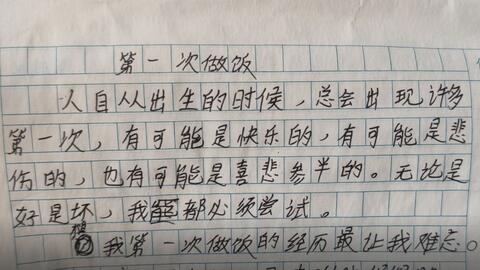 第一次做饭
人自从出生的时候，总会出现许多
第一次，有可能是快乐的，有可能是悲
伤的，也有可能是喜悲参半的。无论是
好是坏，我都必须尝试。
我第一次做饭的经历最让我难忘。